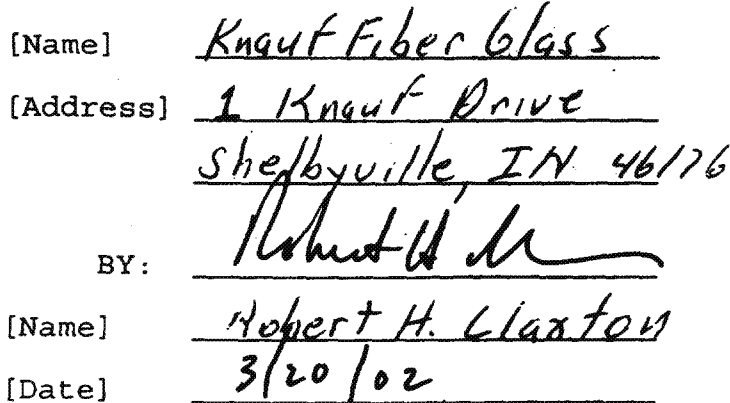 [Name] Knauf Fiber Glass
[Address] 1 Knauf Drive
Shelbyville, IN 46176
BY: Robert H.
[Name] Robert H. Claxton
[Date] 3/20/02